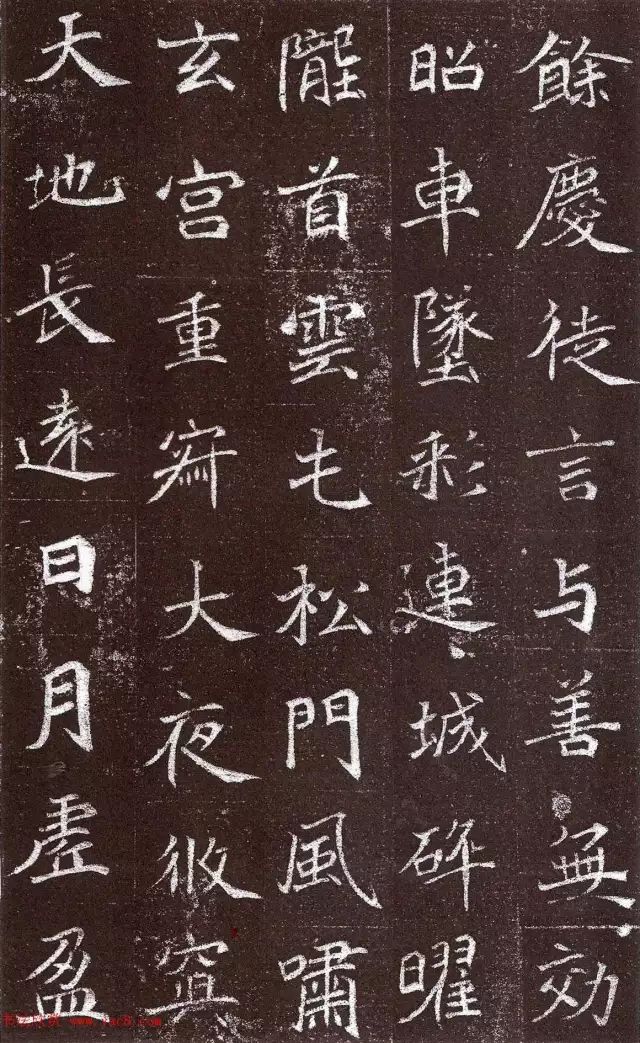 餘慶徒言与善無効
昭車墜彩連城碎曜
隴首雲屯松門風嘯
玄宫重㝥大夜攸窅
天地長遠日月虚盈
www.yac8.com